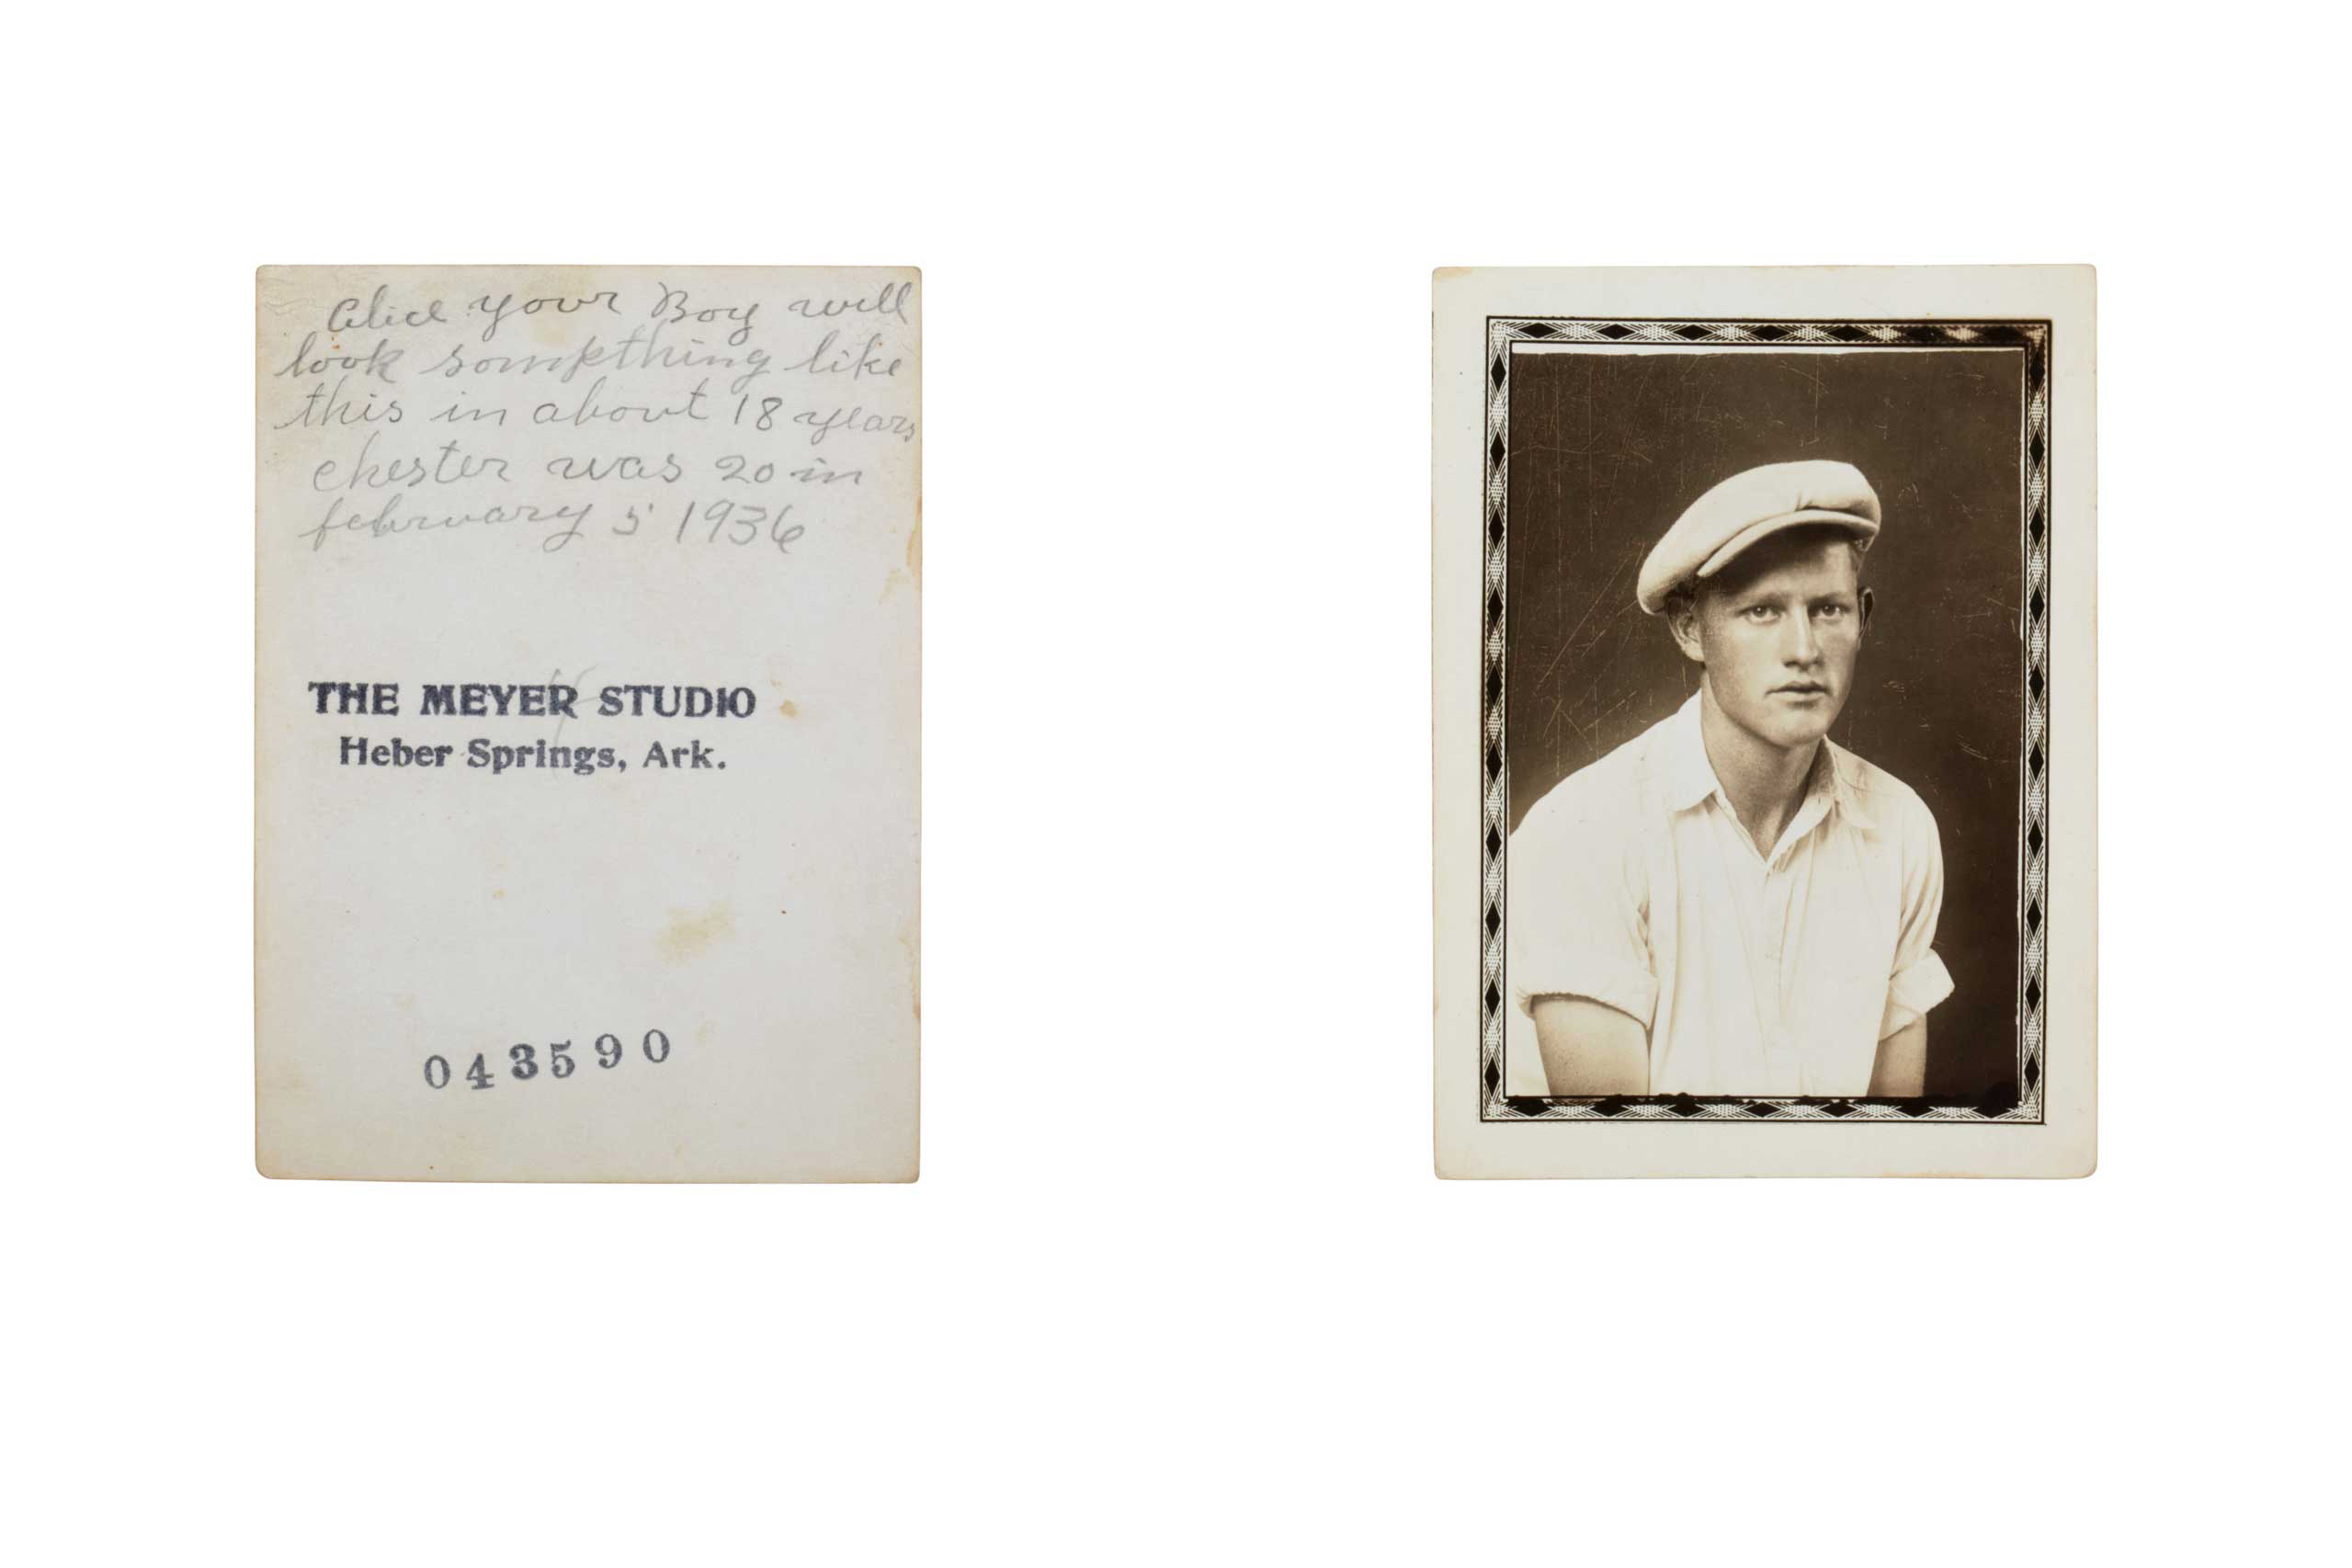 Alice your Boy will
look sompthing like
this in about 18 years
chester was 20 in
february 5 1936
THE MEYER STUDIO
Heber Springs, Ark.
043590